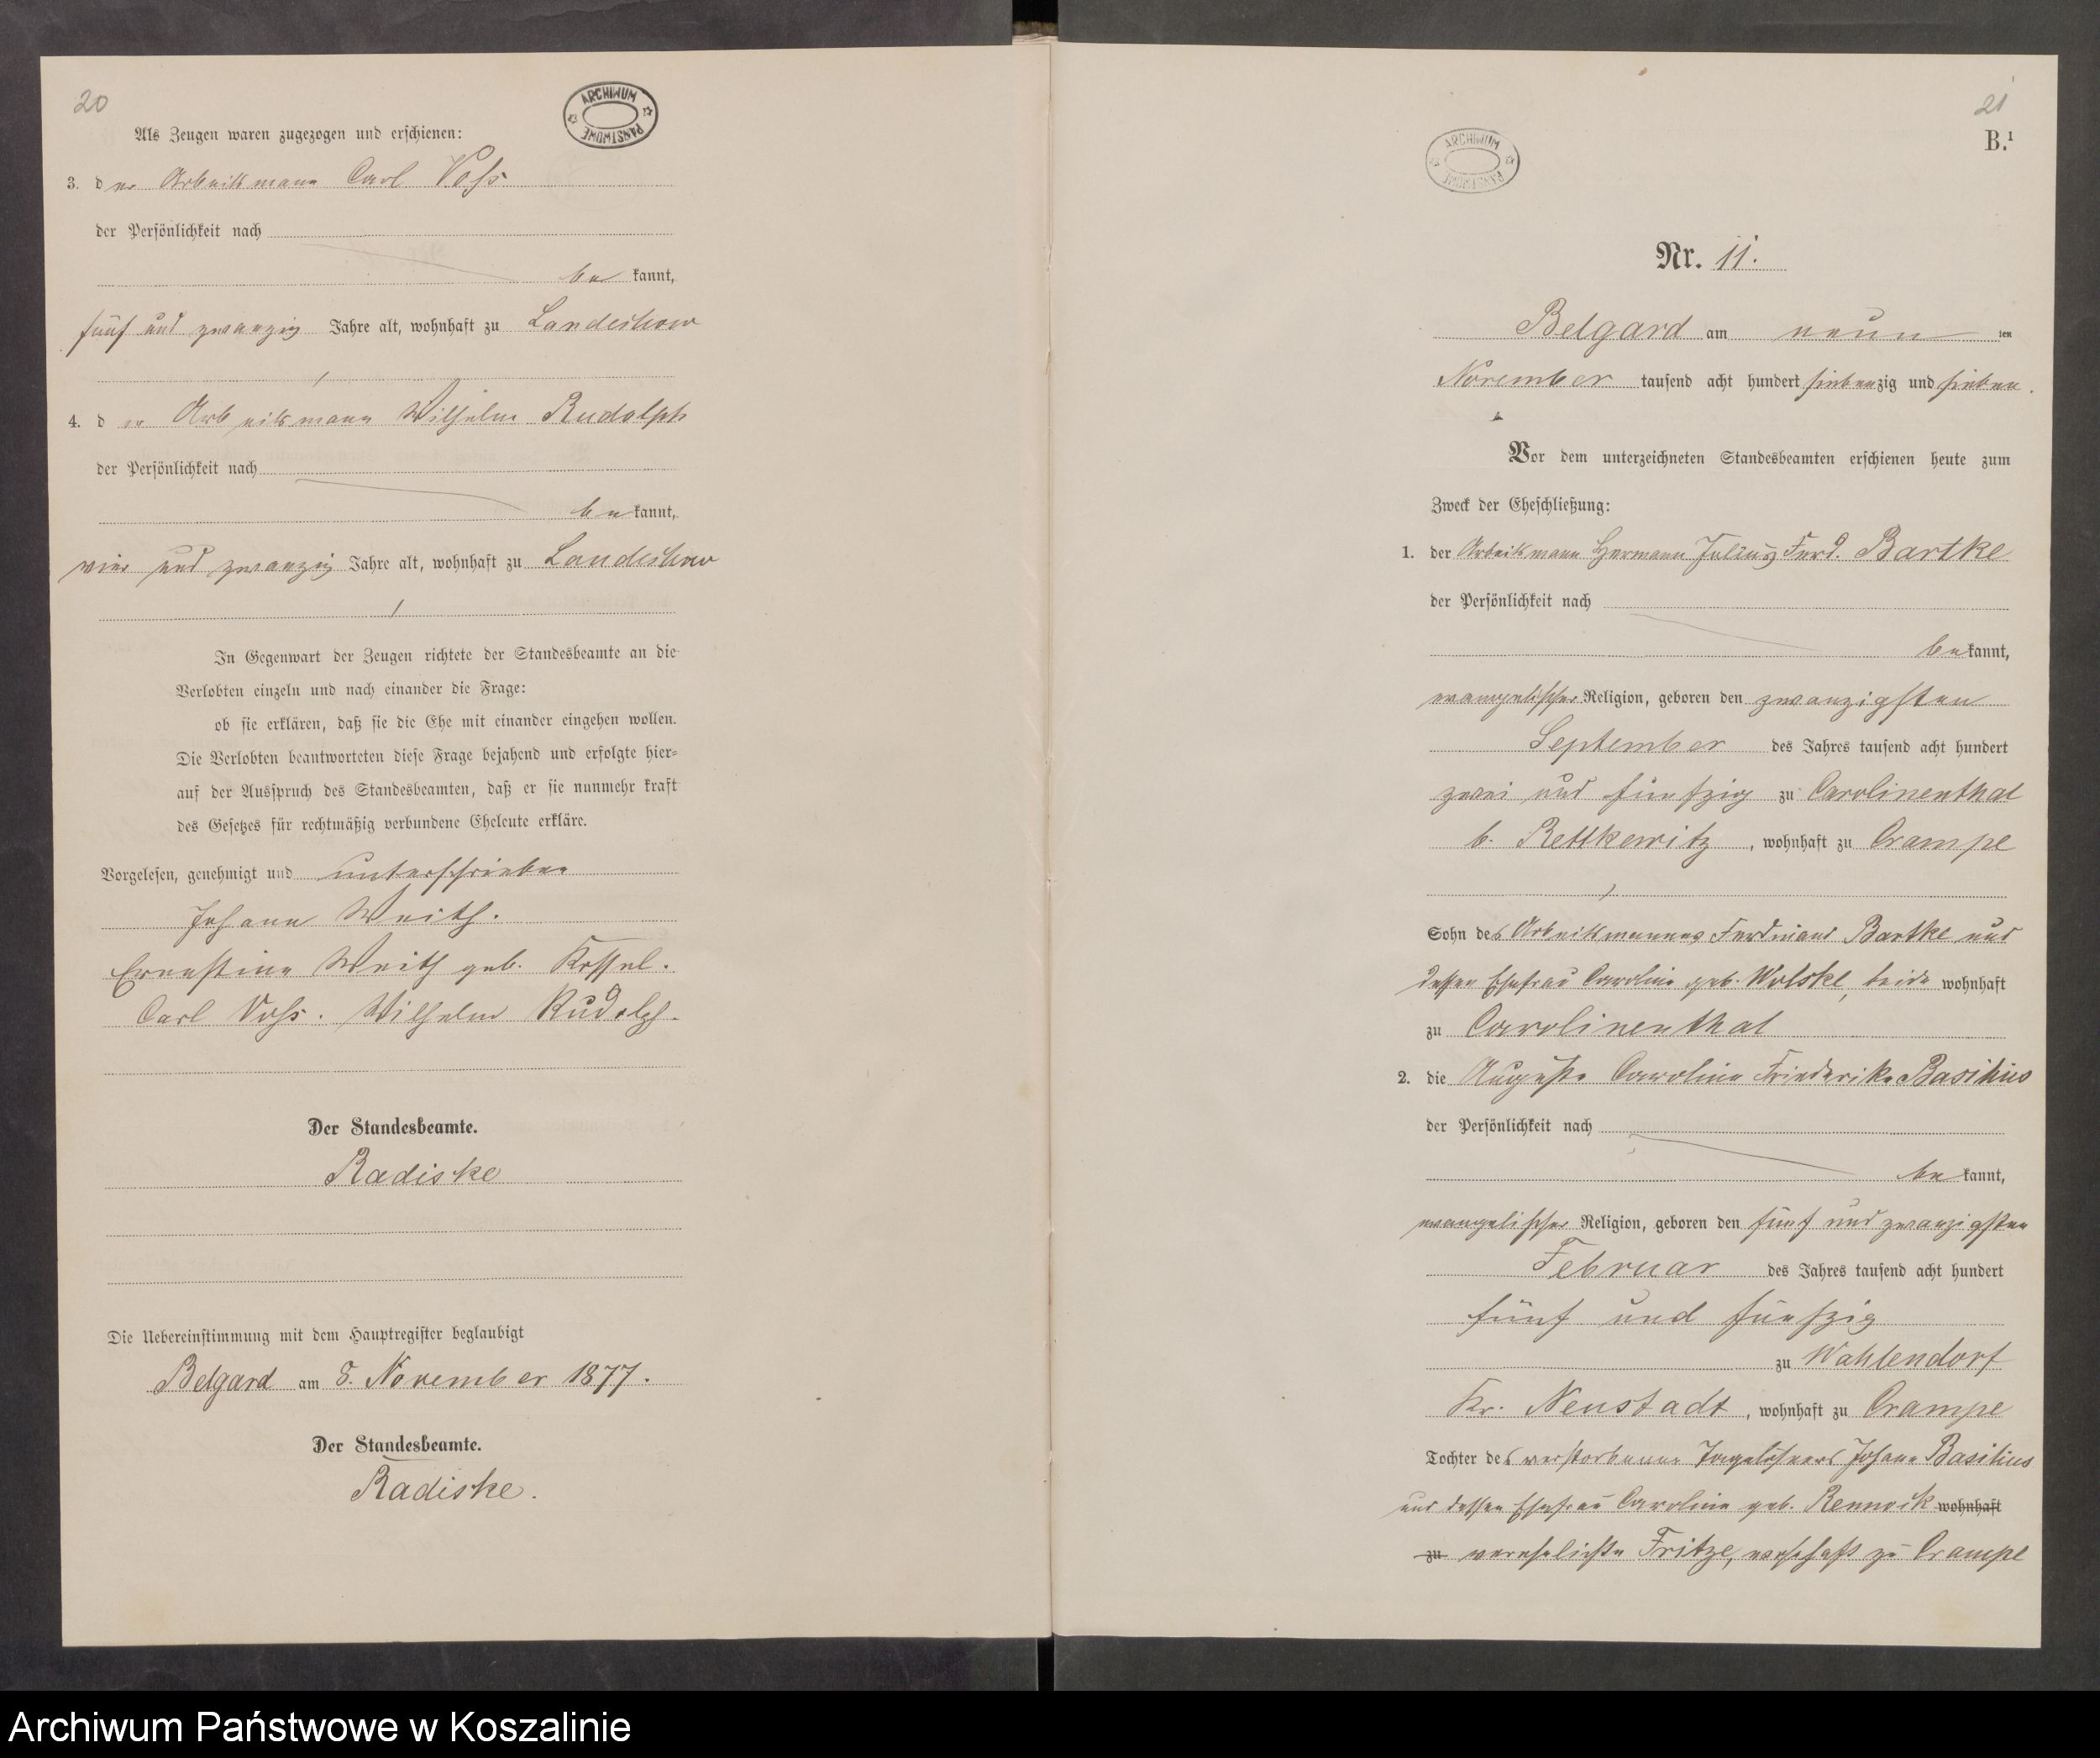 20
ARCHIWUM PAŃSTWOWE
Als Zeugen waren zugezogen und erschienen:
3. der Arbeitsmann Carl Voß
der Persönlichkeit nach
be kannt,
fünf und zwanzig Jahre alt, wohnhaft zu Landechow
4. der Arbeitsmann Wilhelm Rudolph
der Persönlichkeit nach
be kannt,
vier und zwanzig Jahre alt, wohnhaft zu Landechow
In Gegenwart der Zeugen richtete der Standesbeamte an die
Verlobten einzeln und nach einander die Frage:
ob sie erklären, daß sie die Ehe mit einander eingehen wollen.
Die Verlobten beantworteten diese Frage bejahend und erfolgte hier-
auf der Ausspruch des Standesbeamten, daß er sie nunmehr kraft
des Gesetzes für rechtmäßig verbundene Eheleute erkläre.
Vorgelesen, genehmigt und unterschrieben
Johann Weith.
Ernestine Weith geb. Kossel.
Carl Voß. Wilhelm Rudolph.
Der Standesbeamte.
Radiske
Die Uebereinstimmung mit dem Hauptregister beglaubigt
Belgard am 8. November 1877.
Der Standesbeamte.
Radiske.
21
B.¹
ARCHIWUM PAŃSTWOWE
Nr. 11.
Belgard am neun ten
November tausend acht hundert siebenzig und sieben.
Vor dem unterzeichneten Standesbeamten erschienen heute zum
Zweck der Eheschließung:
1. der Arbeitsmann Hermann Julius Ferd. Bartke
der Persönlichkeit nach
be kannt,
evangelischer Religion, geboren den zwanzigsten
September des Jahres tausend acht hundert
zwei und fünfzig zu Carolinenthal
b. Rettkewitz, wohnhaft zu Crampe
Sohn des Arbeitsmannes Ferdinand Bartke und
dessen Ehefrau Caroline geb. Wolskel, beide wohnhaft
zu Carolinenthal
2. die Auguste Caroline Friederike Basilius
der Persönlichkeit nach
be kannt,
evangelischer Religion, geboren den fünf und zwanzigsten
Februar des Jahres tausend acht hundert
fünf und fünfzig
zu Wahlendorf
Kr. Neustadt, wohnhaft zu Crampe
Tochter des verstorbenen Tagelöhners Johann Basilius
und dessen Ehefrau Caroline geb. wohnhaft
zu verehelichte Fritze, wohnhaft zu Crampe
Archiwum Państwowe w Koszalinie